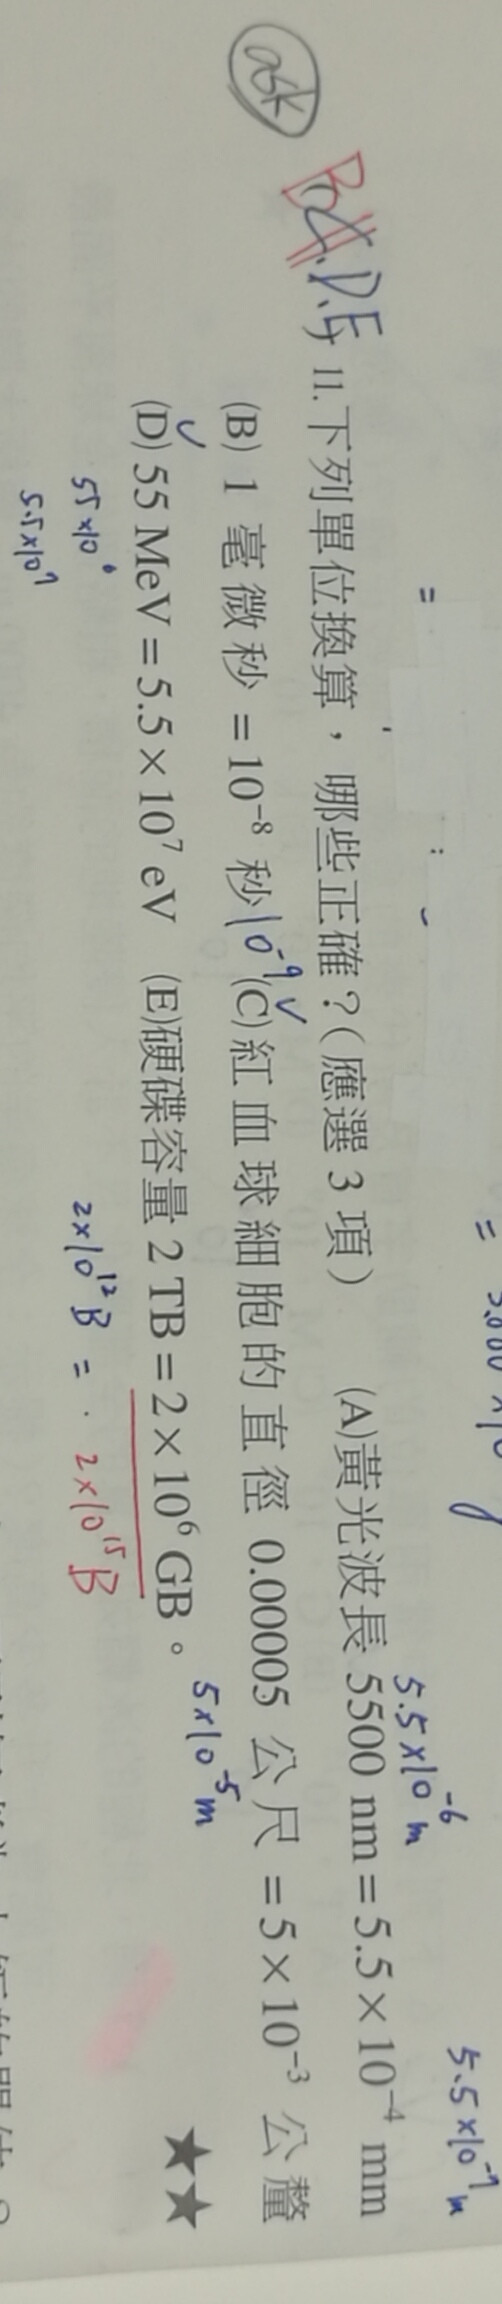 ask
B C.D.E 11.下列單位換算，哪些正確？(應選 3 項) (A)黃光波長 5500 nm＝5.5×10⁻⁴ mm
5.5×10⁻⁶ m
5.5×10⁻⁷ m
(B) 1 毫微秒＝10⁻⁸ 秒 10⁻⁹ (C)紅血球細胞的直徑 0.00005 公尺＝5×10⁻³ 公釐
5×10⁻⁵ m
(D) 55 MeV＝5.5×10⁷ eV (E)硬碟容量 2 TB＝2×10⁶ GB。
★★
55×10⁶
2×10¹² B = 2×10¹⁵ B
5.5×10⁷